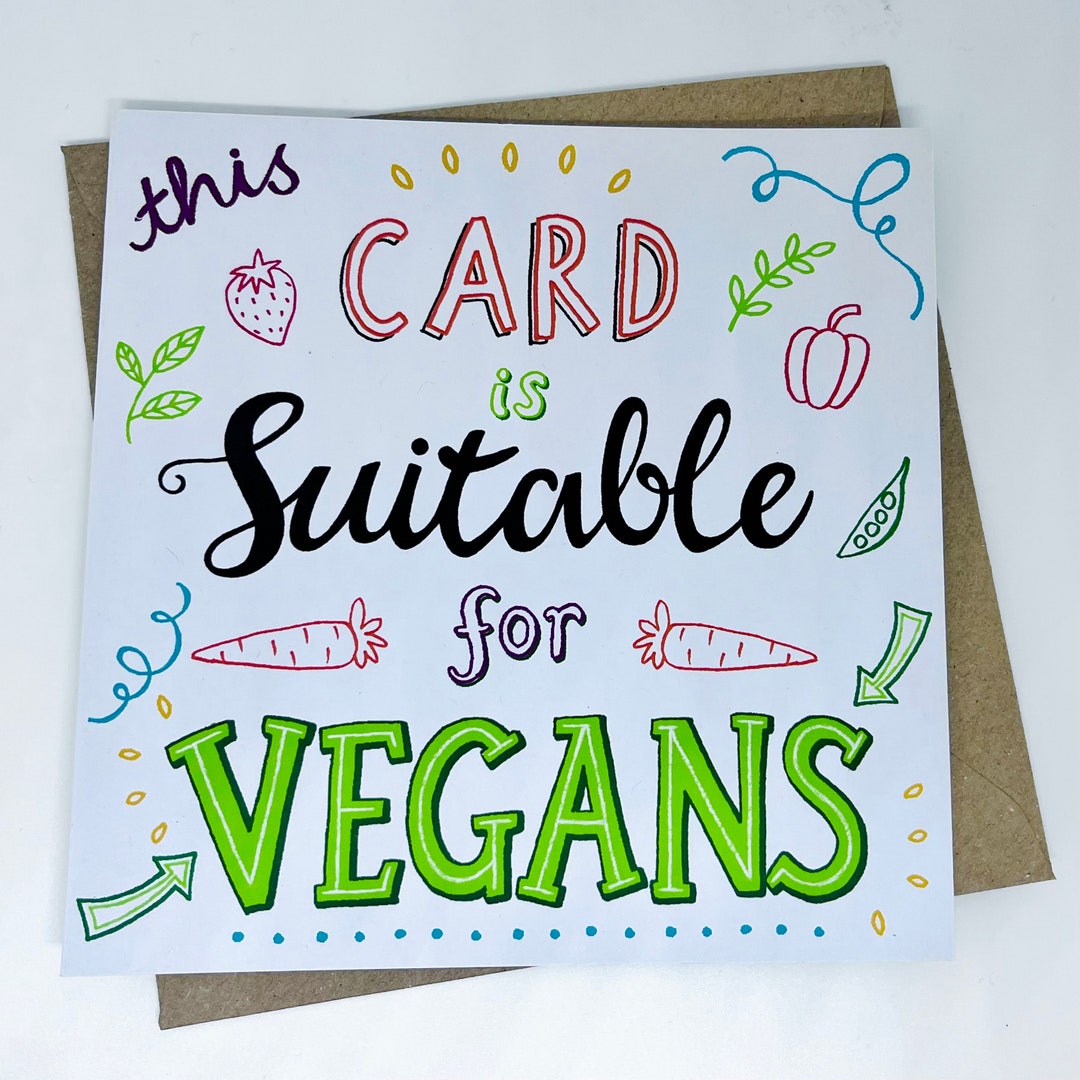 this
CARD
is
Suitable
for
VEGANS